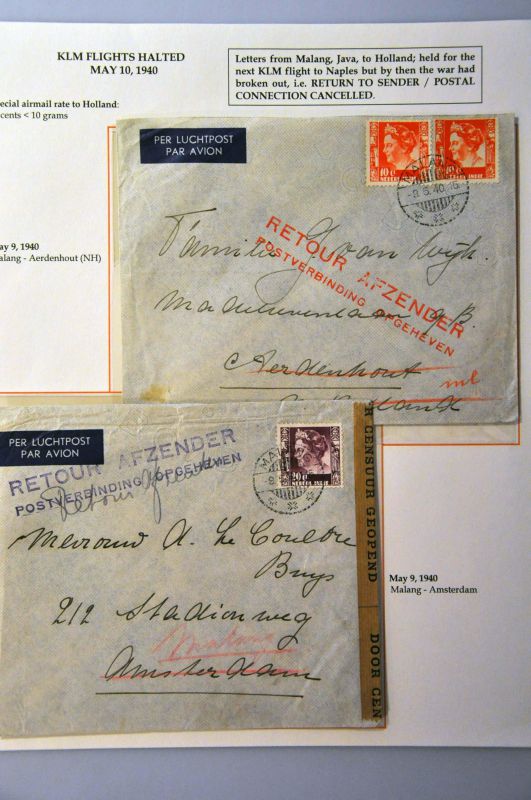 KLM FLIGHTS HALTED
MAY 10, 1940
Letters from Malang, Java, to Holland; held for the
next KLM flight to Naples but by then the war had
broken out, i.e. RETURN TO SENDER / POSTAL
CONNECTION CANCELLED.
ecial airmail rate to Holland:
cents < 10 grams
PER LUCHTPOST
PAR AVION
10 CT
10 CT
NEDERL. INDIE
MALANG
9.5.40.16
ay 9, 1940
alang - Aerdenhout (NH)
Familie G. van Wijk.
RETOUR AFZENDER
POSTVERBINDING OPGEHEVEN
Aerdenhout
Holland
PER LUCHTPOST
PAR AVION
RETOUR AFZENDER
POSTVERBINDING OPGEHEVEN
Retour
20 CT
NEDERL. INDIE
MAL
Mevrouw A. Le Coultre
Buys
212 Stadionweg
Malang
Amsterdam
R CENSUUR GEOPEND
DOOR CEN
May 9, 1940
Malang - Amsterdam